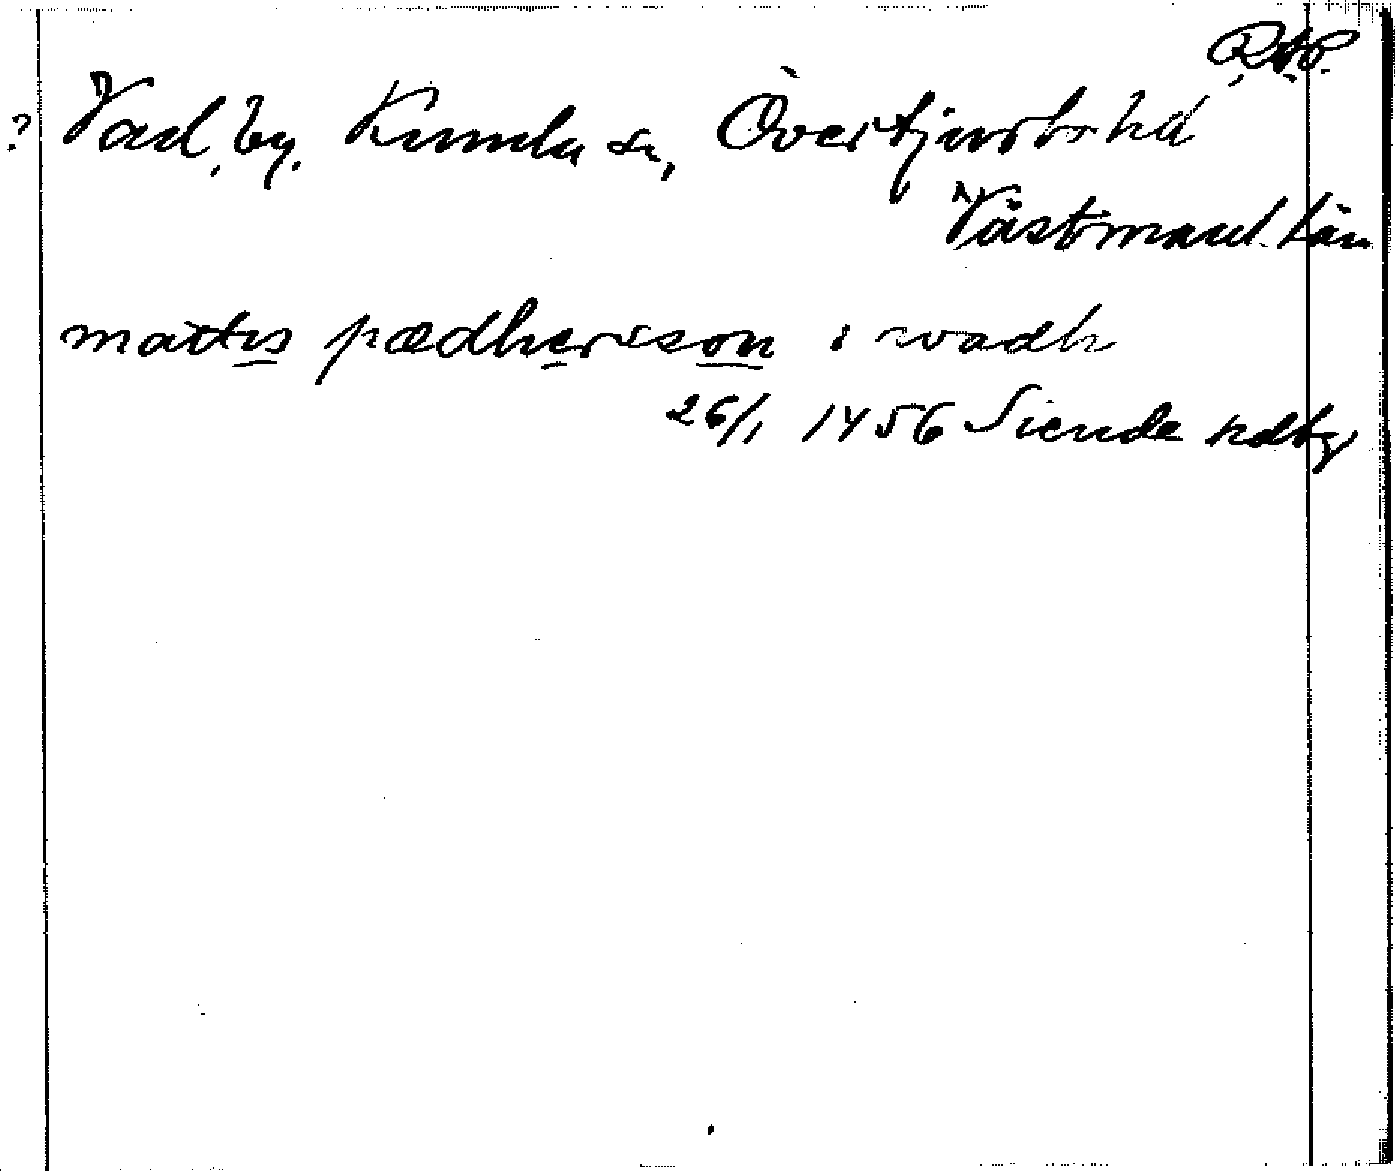 R.A.P.
? Vad, by, Kumla sn, Övertjurbo hd
Västmanl. län
mattis pædhersson i wadh
26/1 1456 Siende hdbg